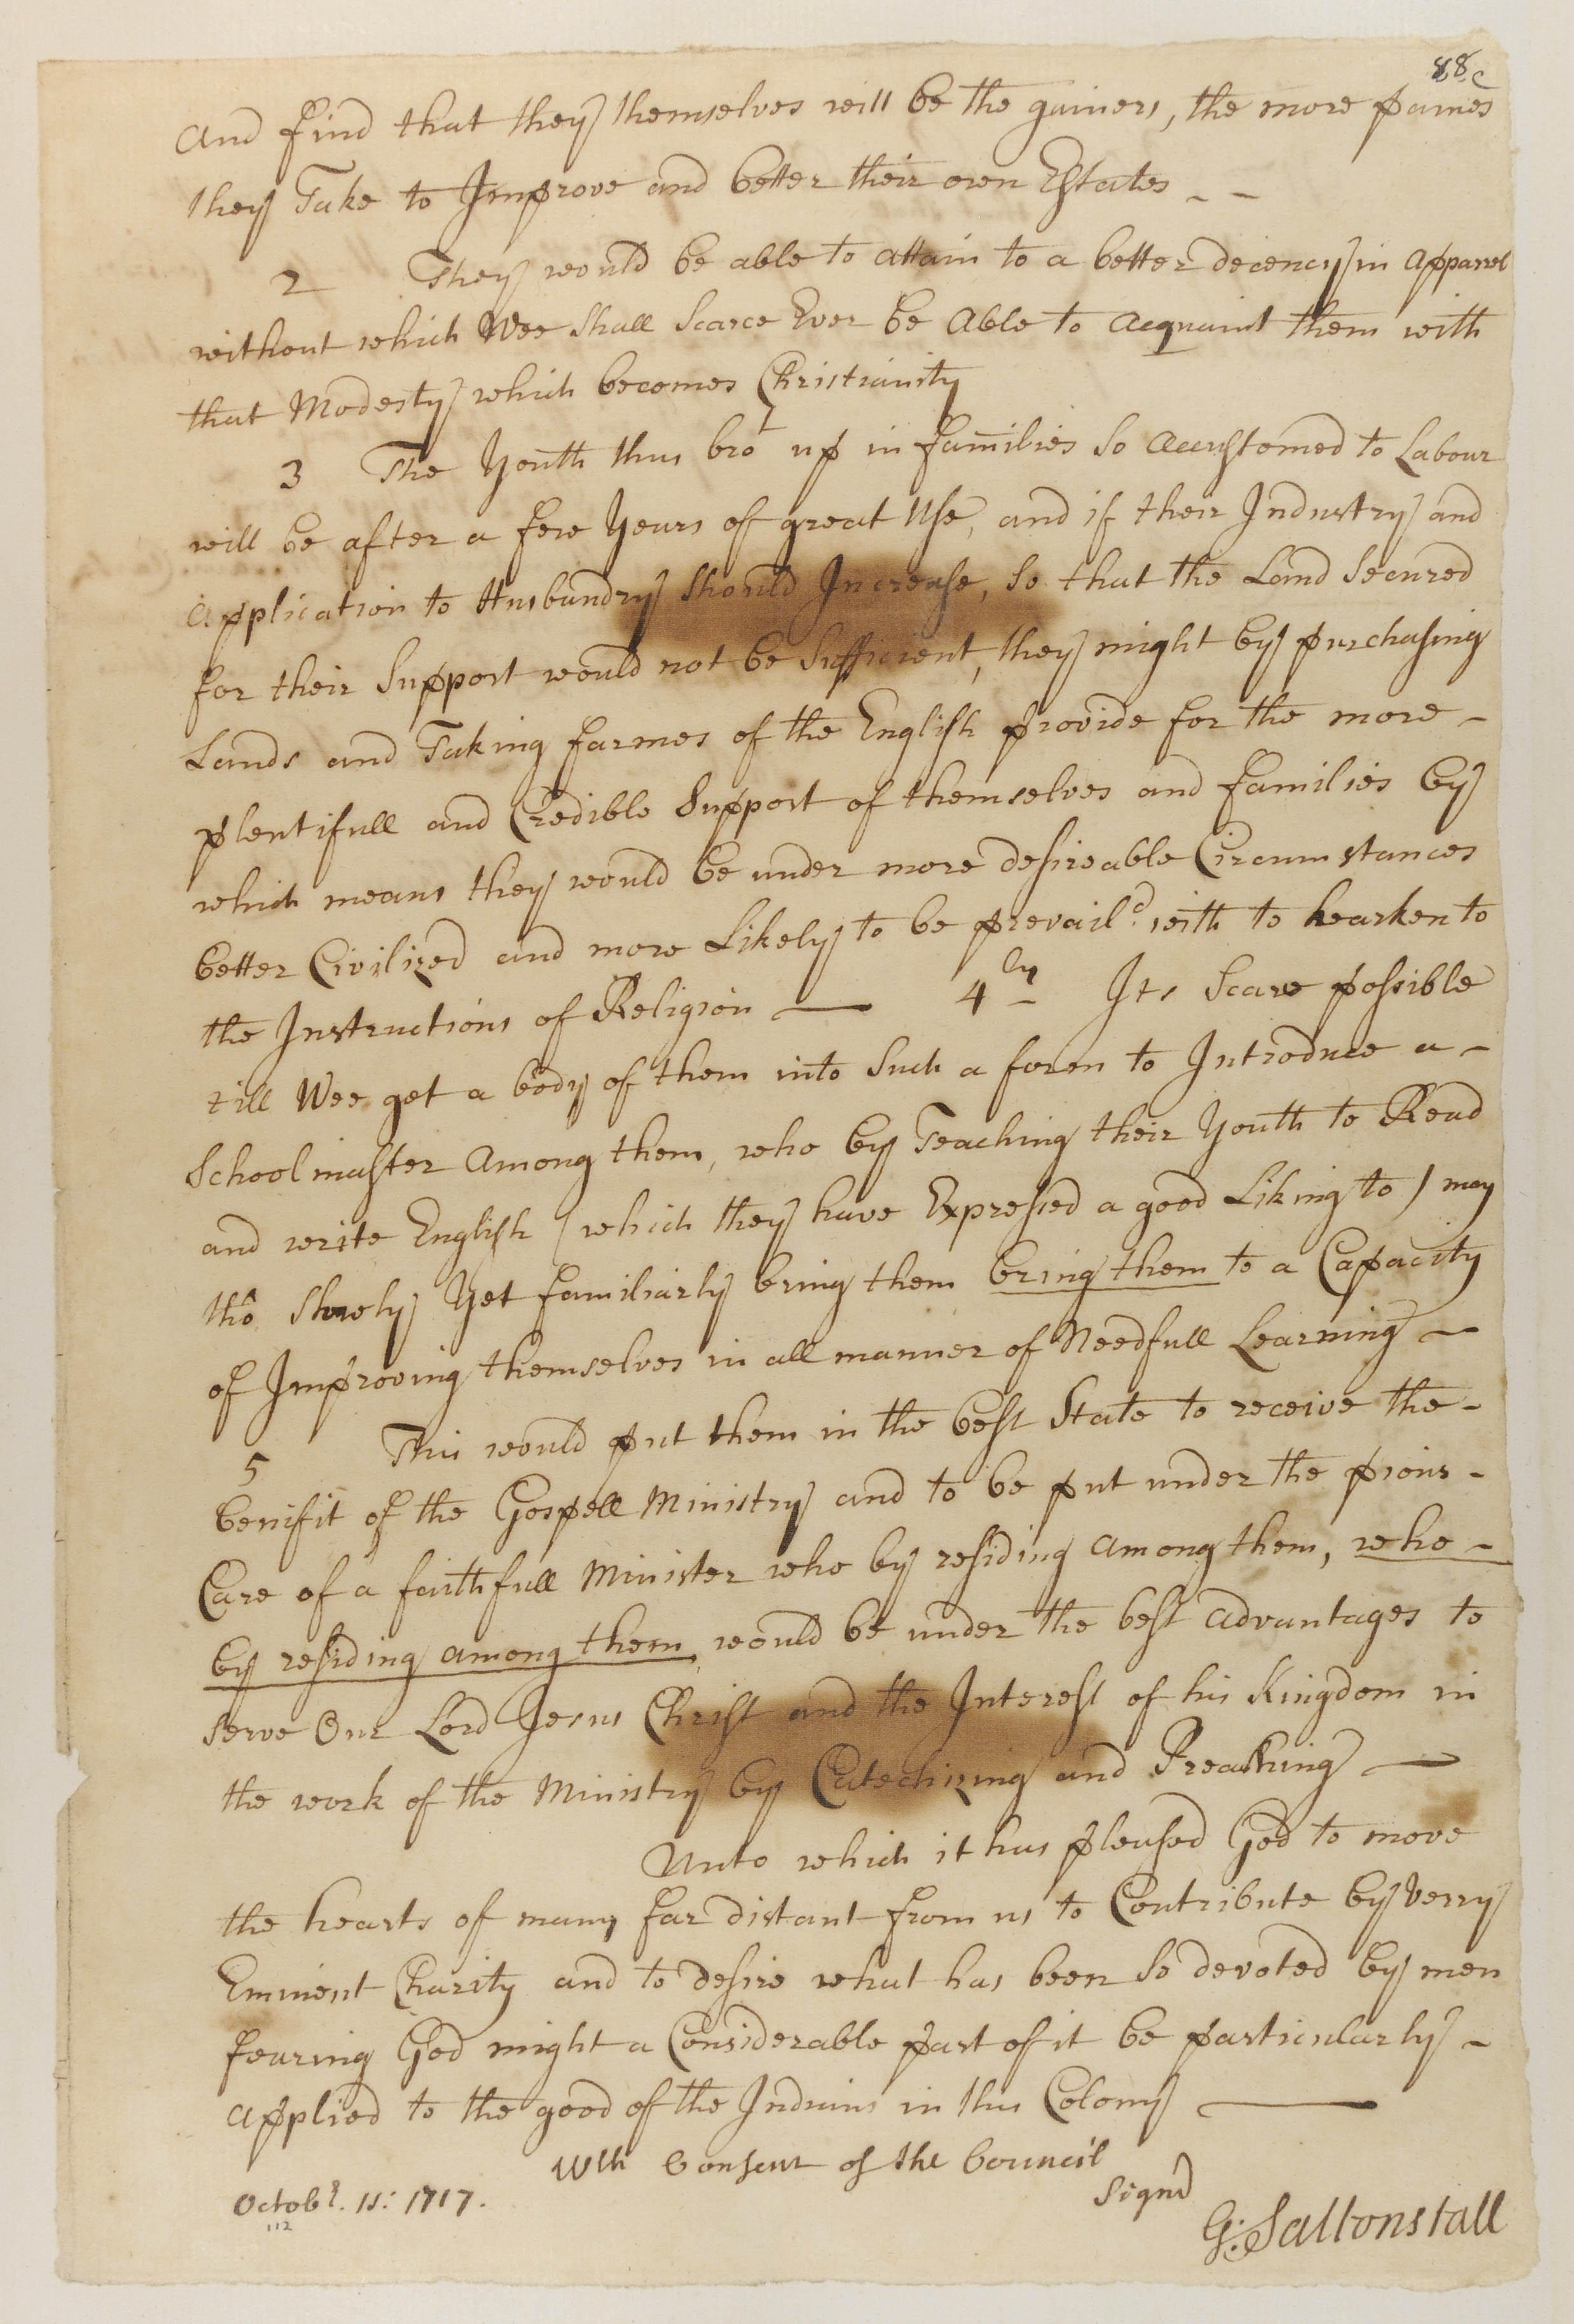 88c
and find that they themselves will be the gainers, the more paines
they Take to Improve and better their own Estates - -
2 They would be able to attain to a better decency in Apparrel
without which Wee Shall Scarce Ever be Able to acquaint them with
that Modesty which becomes Christianity
3 The Youth thus brot up in families So accustomed to Labour
will be after a few Years of great Use, and if their Industry and
application to Husbandry Should Increase, So that the Land Secured
for their Support would not be Sufficient, they might by purchasing
Lands and Taking farmes of the English provide for the more -
plentifull and Credible Support of themselves and families by
which means they would be under more desireable Circumstances
better Civilized and more Likely to be prevaild with to hearken to
the Instructions of Religion — 4ly Its Scarce possible
till Wee get a body of them into Such a form to Introduce a -
School master among them, who by Teaching their Youth to Read
and write English (which they have Expressed a good Liking to) may
tho Slowly Yet familiarly bring them bring them to a Capacity
of Improving themselves in all manner of Needfull Learning —
5 This would put them in the best State to receive the -
benifit of the Gospell Ministry and to be put under the pious -
Care of a faithfull Minister who by residing among them, who -
by residing among them, would be under the best advantages to
serve Our Lord Jesus Christ and the Interest of his Kingdom in
the work of the Ministry by Catechizing and Preaching —
Unto which it has pleased God to move
the hearts of many far distant from us to Contribute by Verry
Eminent Charity and to desire what has been So devoted by men
fearing God might a Considerable part of it be particularly -
applied to the good of the Indians in this Colony —
Wth Consent of the Council
Octobr. 11: 1717. Signd
112
G: Saltonstall